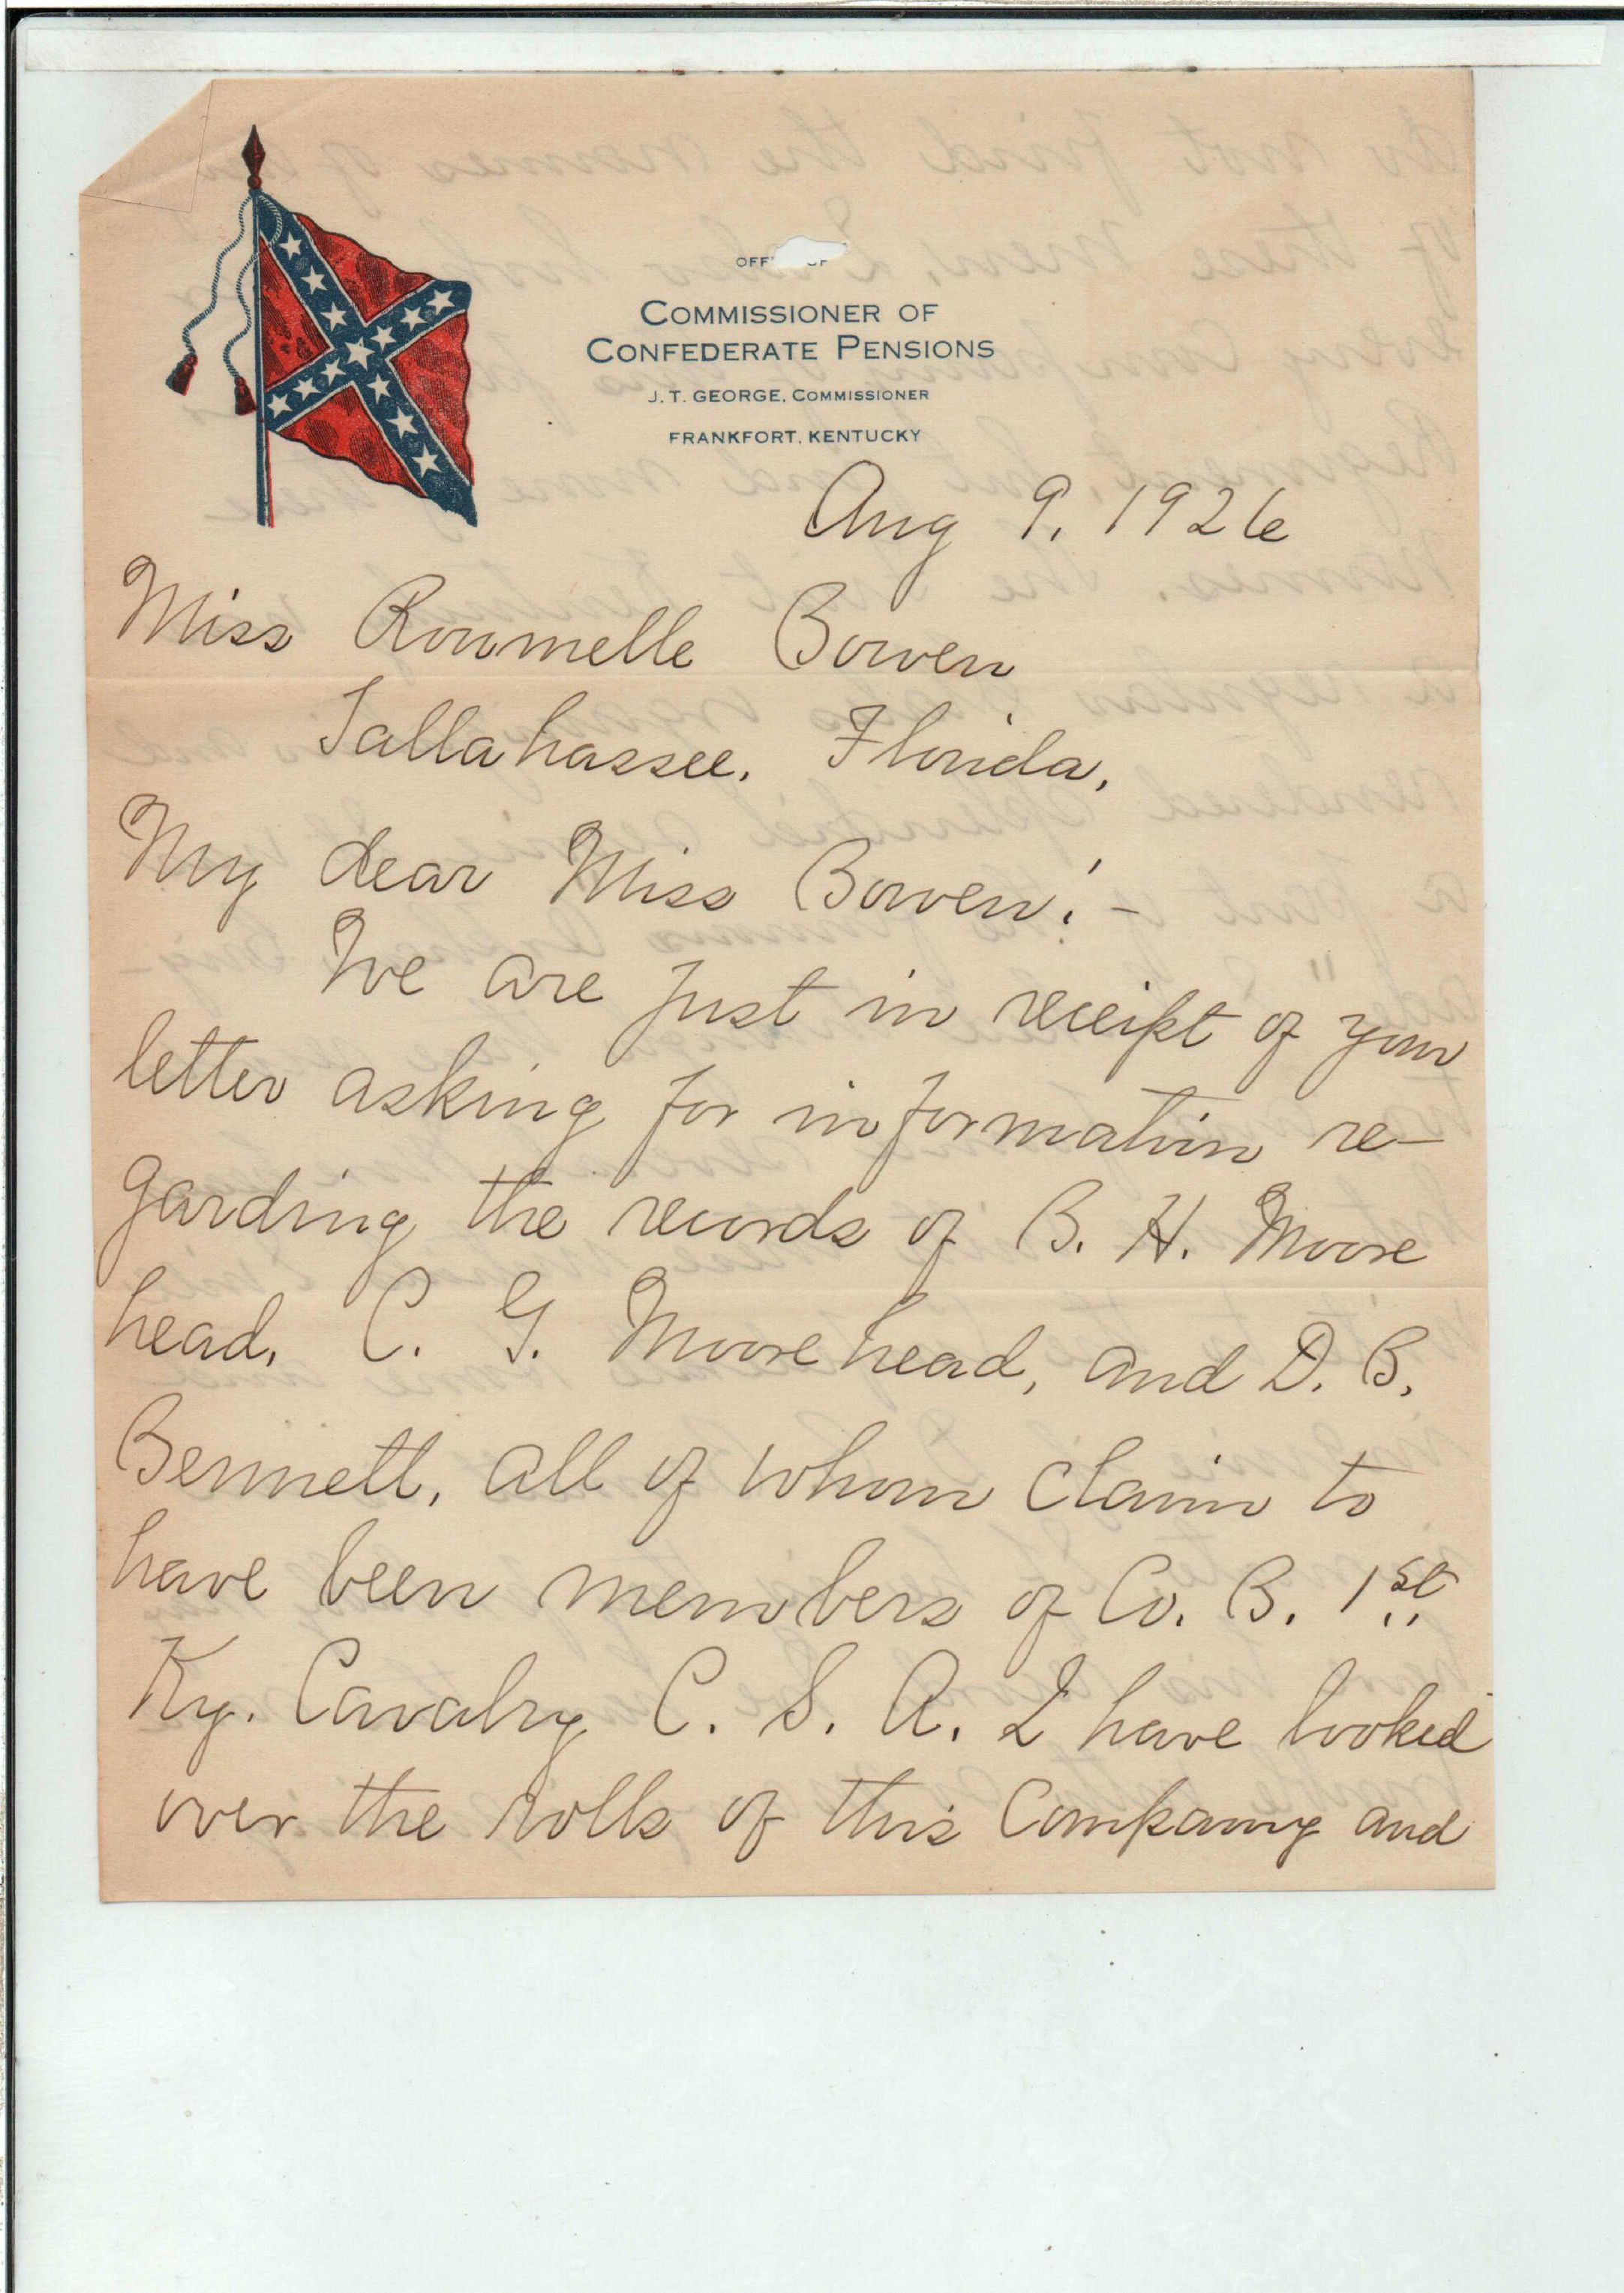 COMMISSIONER OF
CONFEDERATE PENSIONS
J. T. GEORGE, COMMISSIONER
FRANKFORT, KENTUCKY
Aug 9, 1926
Miss Roumelle Bowen
Tallahassee, Florida,
My dear Miss Bowen:-
We are just in receipt of your
letter asking for information re-
garding the records of B. H. Moore
head, C. G. Moorehead, and D. B.
Bennett, all of whom claim to
have been members of Co. B. 1st
Ky. Cavalry C. S. A. I have looked
over the rolls of this Company and